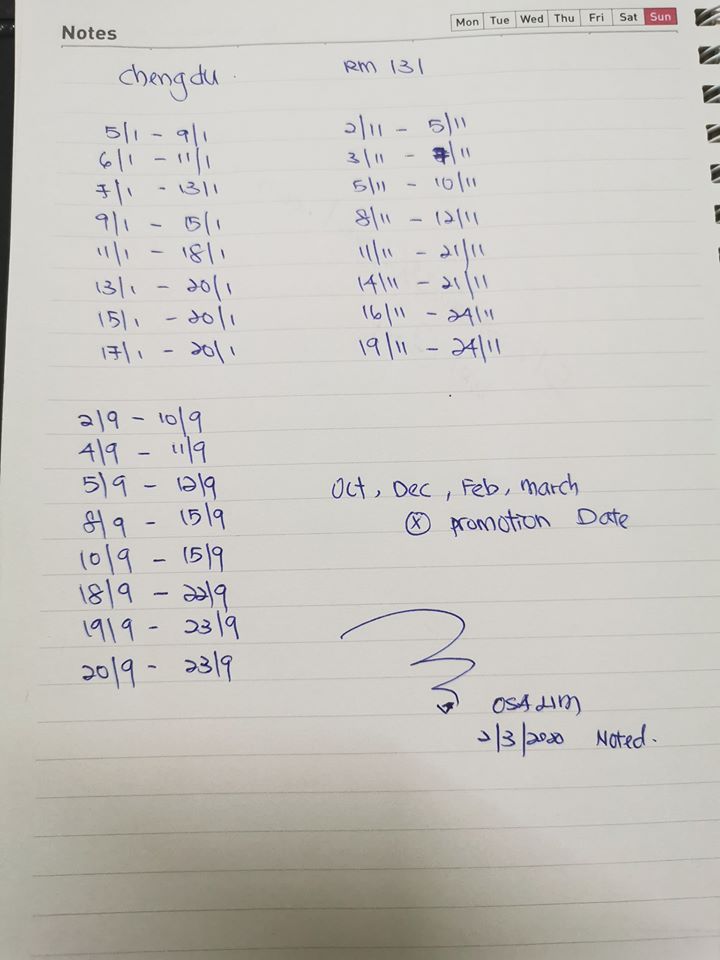 Notes
Mon Tue Wed Thu Fri Sat Sun
Chengdu RM 131
5/1 - 9/1
6/1 - 11/1
7/1 - 13/1
9/1 - 15/1
11/1 - 18/1
13/1 - 20/1
15/1 - 20/1
17/1 - 20/1
2/11 - 5/11
3/11 - 7/11
5/11 - 10/11
8/11 - 12/11
11/11 - 21/11
14/11 - 21/11
16/11 - 24/11
19/11 - 24/11
2/9 - 10/9
4/9 - 11/9
5/9 - 12/9
8/9 - 15/9
10/9 - 15/9
18/9 - 22/9
19/9 - 23/9
20/9 - 23/9
Oct, Dec, Feb, March
ⓧ promotion Date
2/3/2020 Noted.